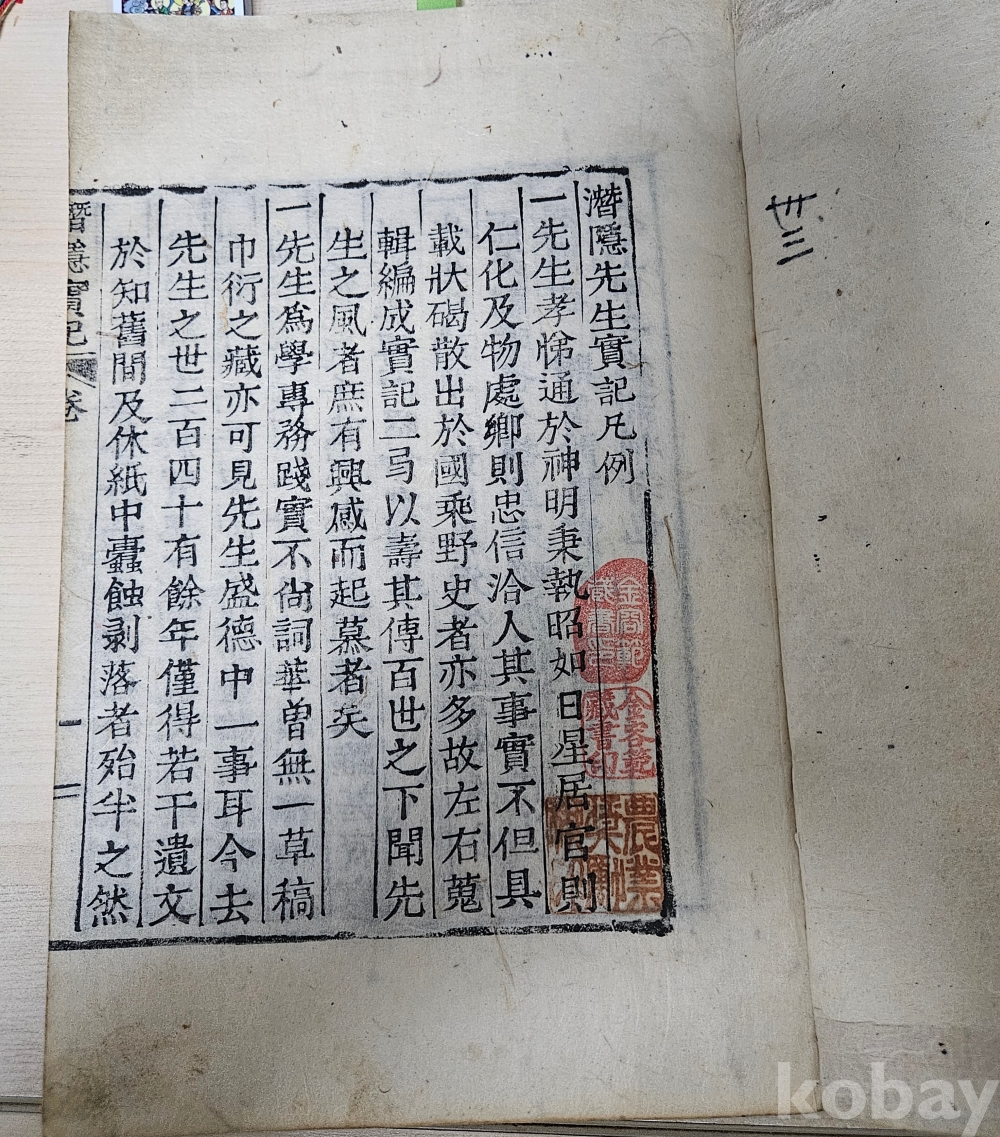 潛隱先生實記凡例
一先生孝悌通於神明秉執昭如日星居官則
仁化及物處鄉則忠信洽人其事實不但具
載狀碣散出於國乘野史者亦多故左右蒐
輯編成實記二弓以壽其傳百世之下聞先
生之風者庶有興感而起慕者矣
一先生爲學專務踐實不尙詞華曾無一草稿
巾衍之藏亦可見先生盛德中一事耳今去
先生之世二百四十有餘年僅得若干遺文
於知舊間及休紙中蠹蝕剝落者殆半之然
潛隱實記 卷
一
二
金容範
藏書印
農樵
卅三
kobay